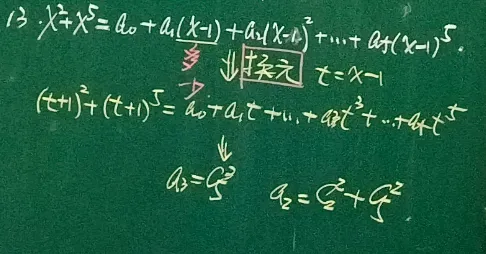 13. x²+x⁵=a₀+a₁(x-1)+a₂(x-1)²+...+a₅(x-1)⁵.
换元 t=x-1
(t+1)²+(t+1)⁵=a₀+a₁t+...+a₃t³+...+a₅t⁵
a₃=C₅³ a₂=C₂²+C₅²